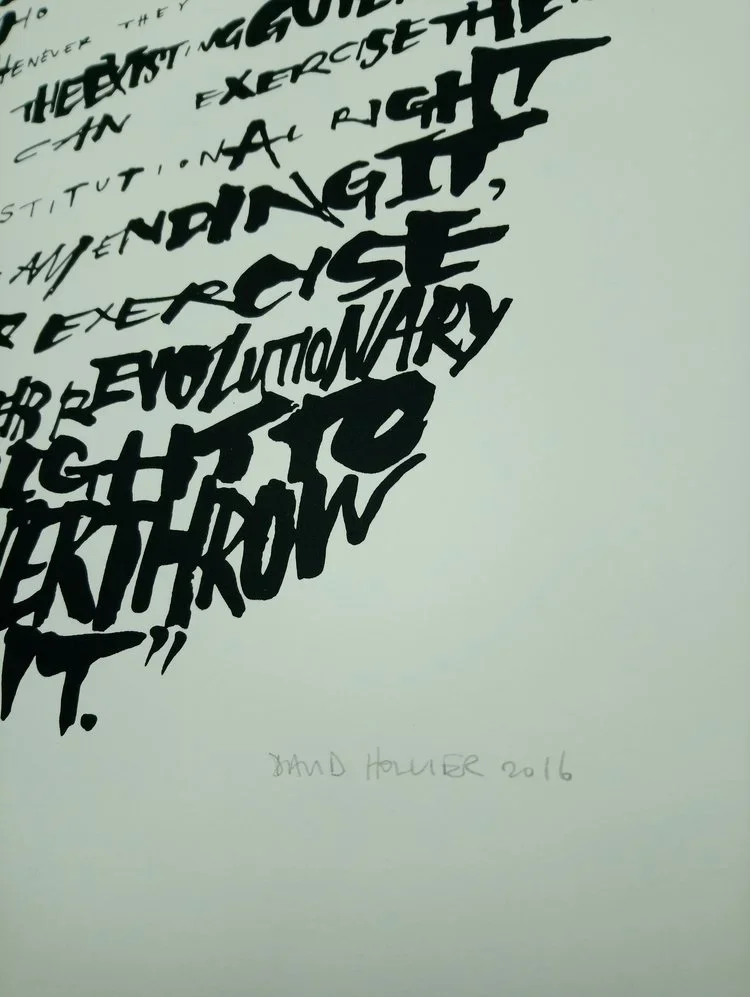 HO
HENEVER THEY
THE EXISTING GOVER
CAN EXERCISE THE
STITUTIONAL RIGHT
AMENDING IT,
R EXERCISE
EIR REVOLUTIONARY
IGHT TO
VERTHROW
IT."
DAVID HOLLIER 2016